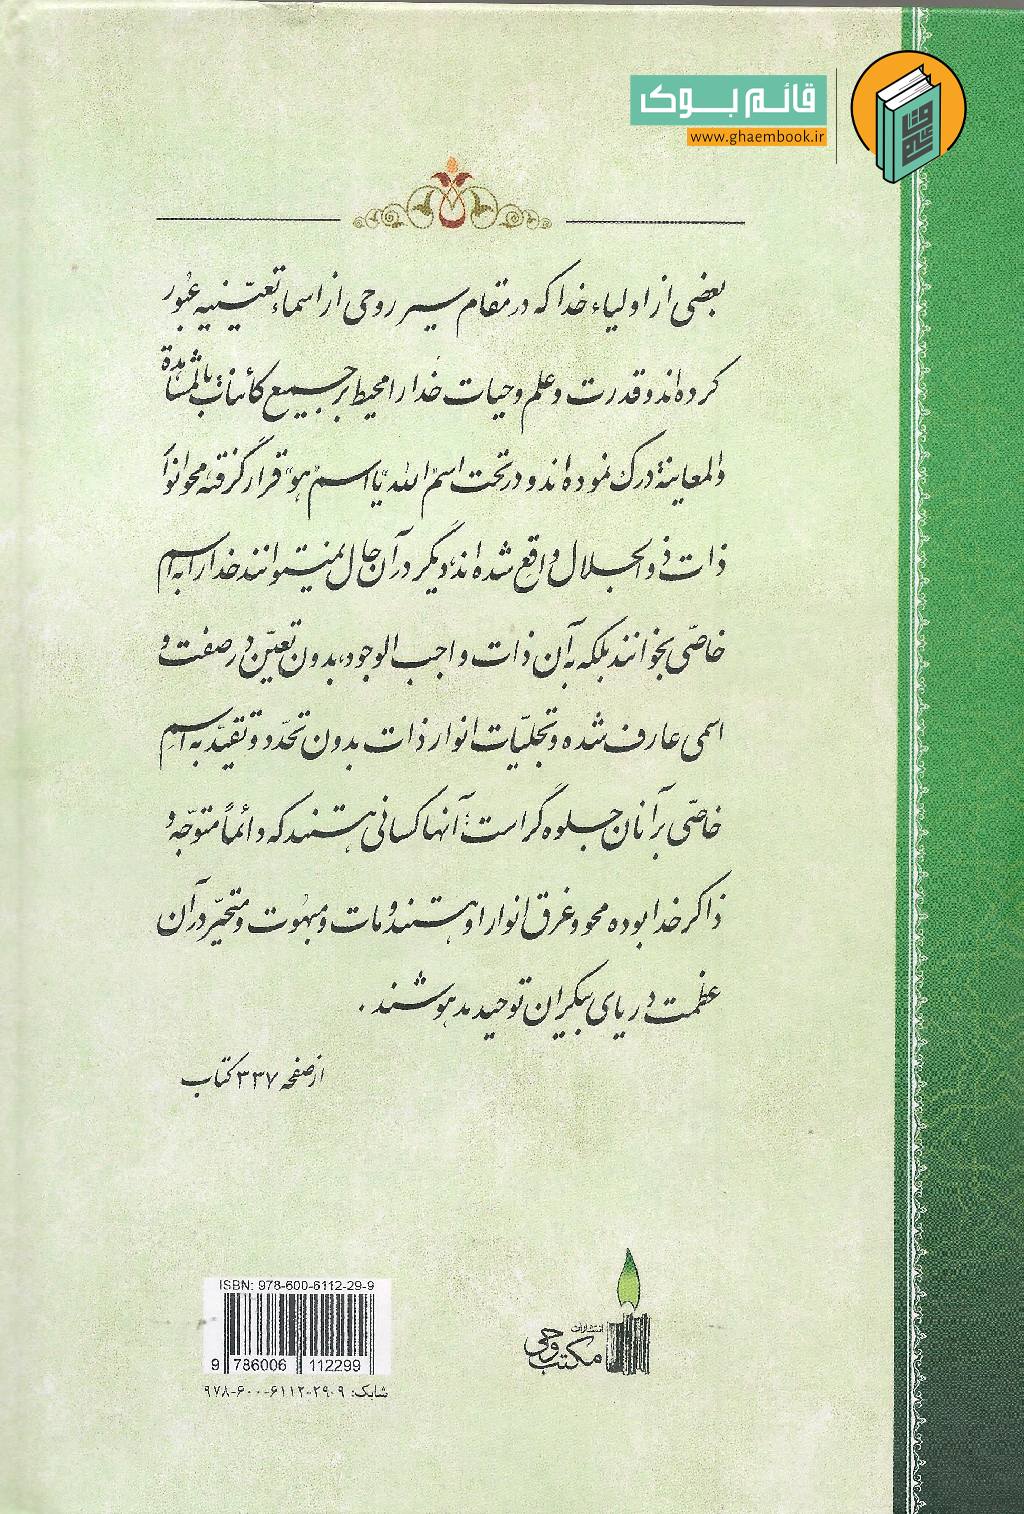 قائم بوک
www.ghaembook.ir
بعضی از اولیاء خدا که در مقام سیر روحی از اسماء تعیّنیه عبُور
کرده‌اند و قدرت و علم و حیات خدا را محیط بر جمیع کائنات بالمُشاهدة
والمعاینة درک نموده‌اند و در تحت اسم "الله" یا اسم "هو" قرار گرفته محو انوار
ذات ذو الجلال واقع شده‌اند، دیگر در آن حال نمیتوانند خدا را به اسم
خاصّی بخوانند بلکه به آن ذات واجب الوجود، بدون تعیّن در صفت و
اسمی عارف شده و تجلیّات انوار ذات بدون تحدّد و تقیّد به اسمِ
خاصّی بر آنان جلوه‌گر است؛ آنها کسانی هستند که دائماً متوجّه و
ذاکر خدا بوده محو و غرق انوار او هستند و مات و مبهُوت و متحیّر در آن
عظمت دریای بیکران توحید مدهوشند .
از صفحه ۳۳۷ کتاب
ISBN: 978-600-6112-29-9
انتشارات
مکتب وحی
9 786006 112299
شابک: ۹۷۸-۶۰۰-۶۱۱۲-۲۹-۹